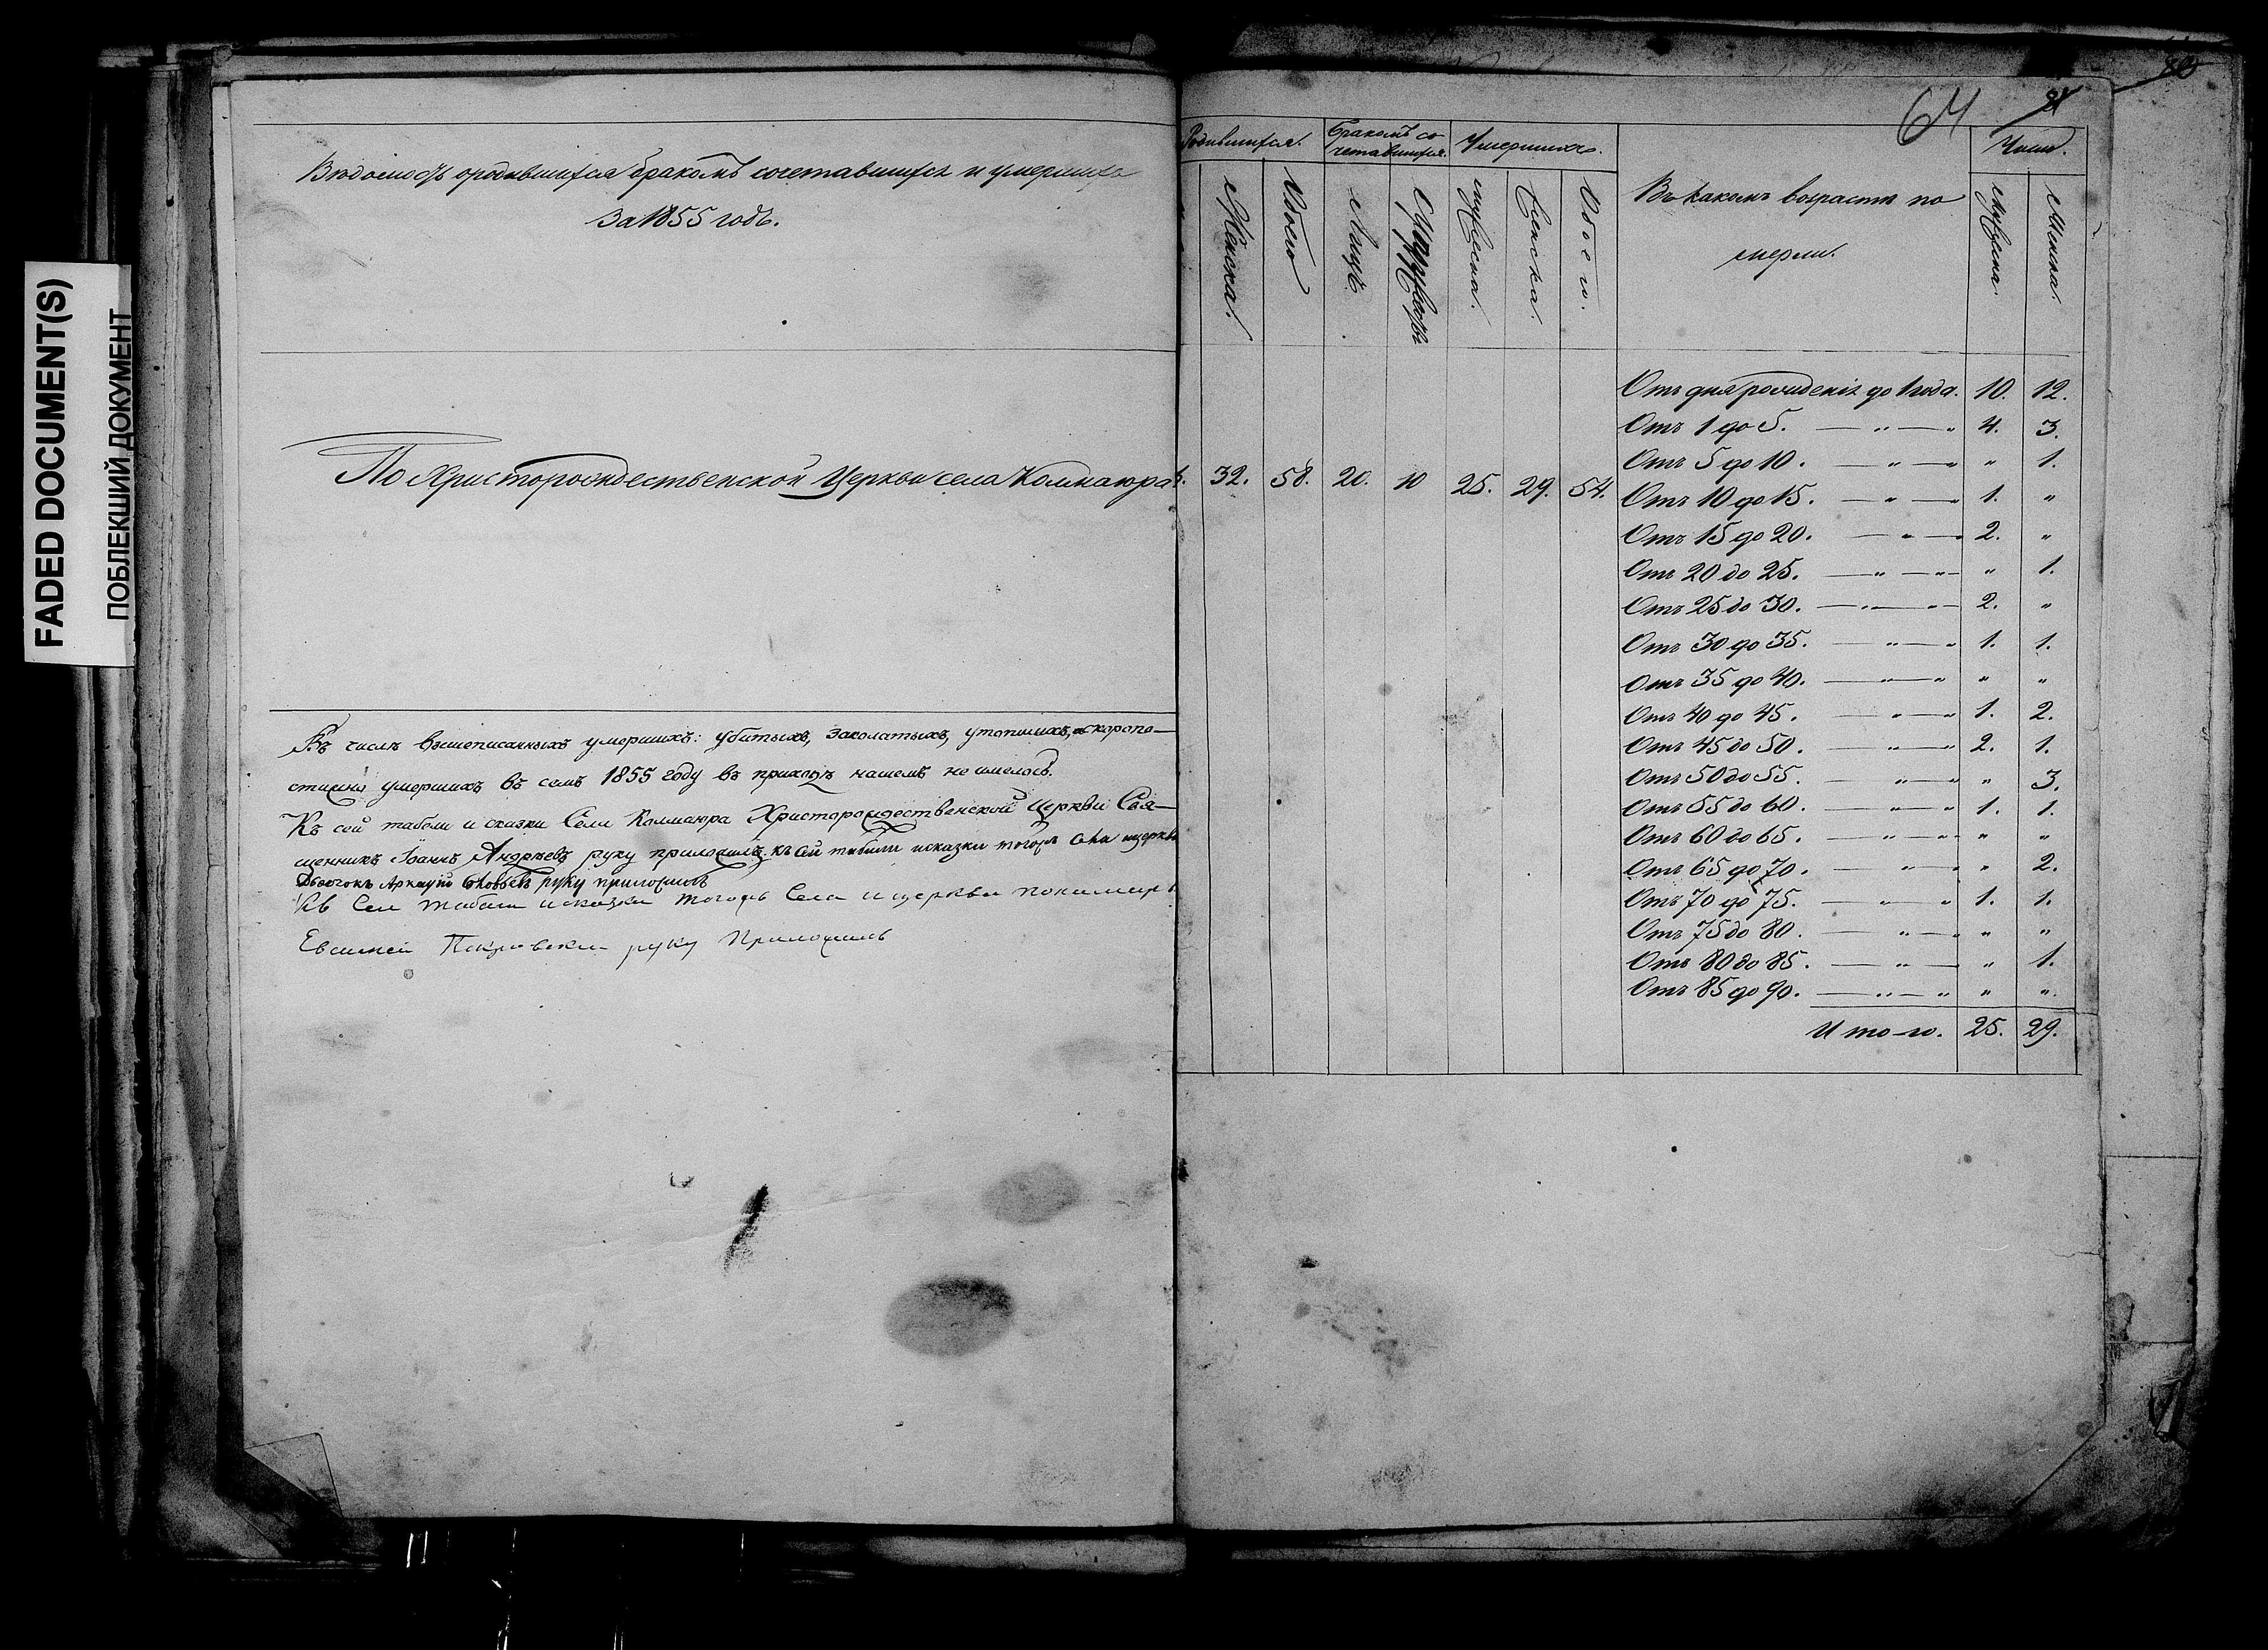 FADED DOCUMENT(S)
ПОБЛЕКШИЙ ДОКУМЕНТ
Вѣдомость ородившихся бракомъ сочетавшихся и умершихъ
За 1855 годъ.
По Христорождественской Церкви села Колмаюра
Въ числѣ вышеписанныхъ умершихъ: убитыхъ, заколатыхъ, утопшихъ, скоропо-
стижно умершихъ въ семъ 1855 году въ приходѣ нашемъ не имелось.
Къ сей табели и сказки Села Колмаюра Христорождественской Церкви Свя-
щенникъ Іоаннъ Андреевъ руку приложилъ. къ сей табели исказки тогожъ села ицеркви
Дьячокъ Аркадій Соловьевъ руку приложилъ
Къ Сей табели исказки тогожъ Села ицеркви понамарь
Евсимей Покровскій руку Приложилъ
64
Родившихся. Бракомъ со- Умершихъ. Число.
четавшихся.
Женска. Обоего Лицъ. Супружествъ мужеска. Женска. Обоего. Въ какомъ возрастѣ по Мужска. Женска.
мерли.
32. 58. 20. 10 25. 29. 54.
Отъ дня рожденія до 1 года. 10. 12.
Отъ 1 до 5. — „ — „ 4. 3.
Отъ 5 до 10. — „ — „ „ 1.
Отъ 10 до 15. — „ — „ 1. „
Отъ 15 до 20. — „ — „ 2. „
Отъ 20 до 25. — „ — „ „ 1.
Отъ 25 до 30. — „ — „ 2. „
Отъ 30 до 35. — „ — „ 1. 1.
Отъ 35 до 40. — „ — „ „ „
Отъ 40 до 45. — „ — „ 1. 2.
Отъ 45 до 50. — „ — „ 2. 1.
Отъ 50 до 55. — „ — „ „ 3.
Отъ 55 до 60. — „ — „ 1. 1.
Отъ 60 до 65. — „ — „ „ „
Отъ 65 до 70. — „ — „ „ 2.
Отъ 70 до 75. — „ — „ 1. 1.
Отъ 75 до 80. — „ — „ „ „
Отъ 80 до 85. — „ — „ 1.
Отъ 85 до 90. — „ — „ „ „
Итого. 25. 29.